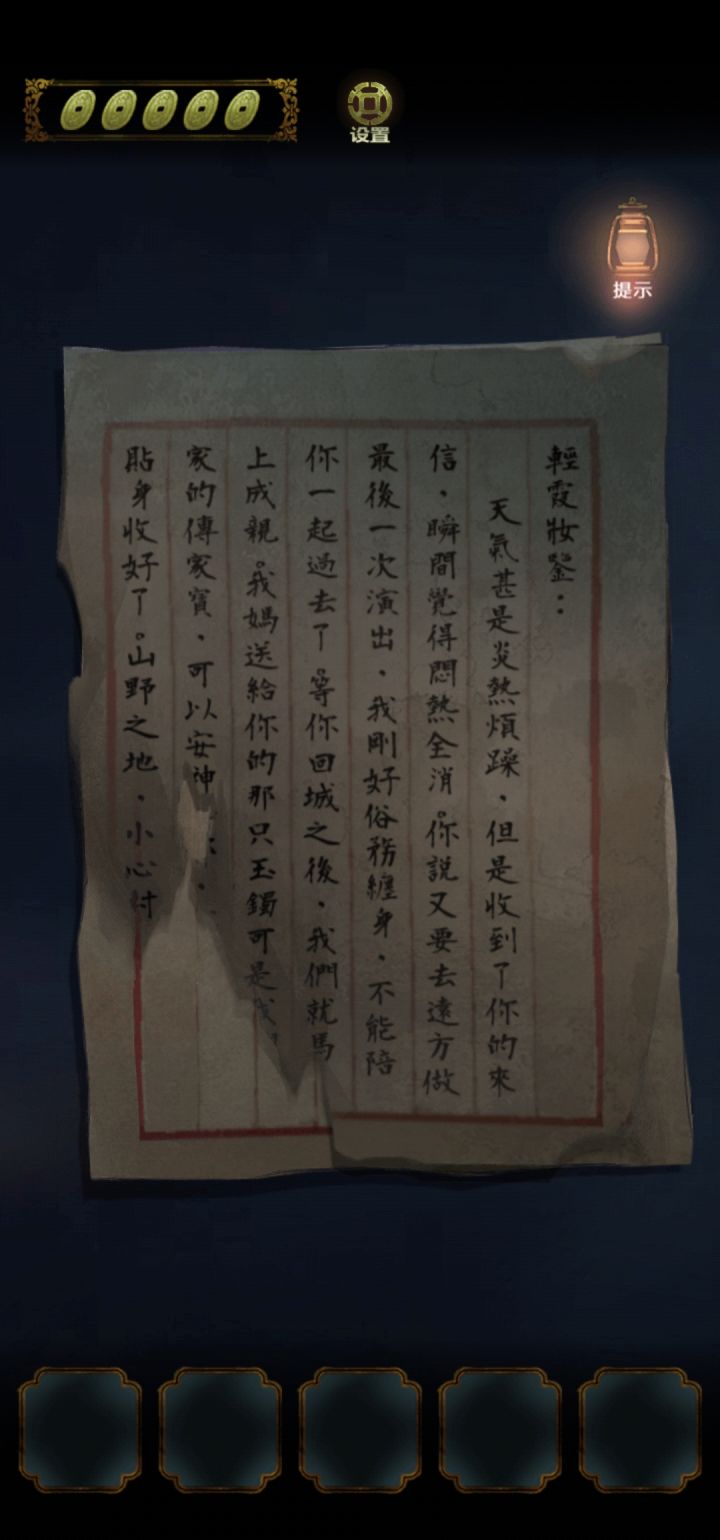 设置
提示
輕霞妝鑒：
天氣甚是炎熱煩躁，但是收到了你的來
信，瞬間覺得悶熱全消。你說又要去遠方做
最後一次演出，我剛好俗務纏身，不能陪
你一起過去了。等你回城之後，我們就馬
上成親。我媽送給你的那只玉鐲可是我
家的傳家寶，可以安神
貼身收好了。山野之地，小心